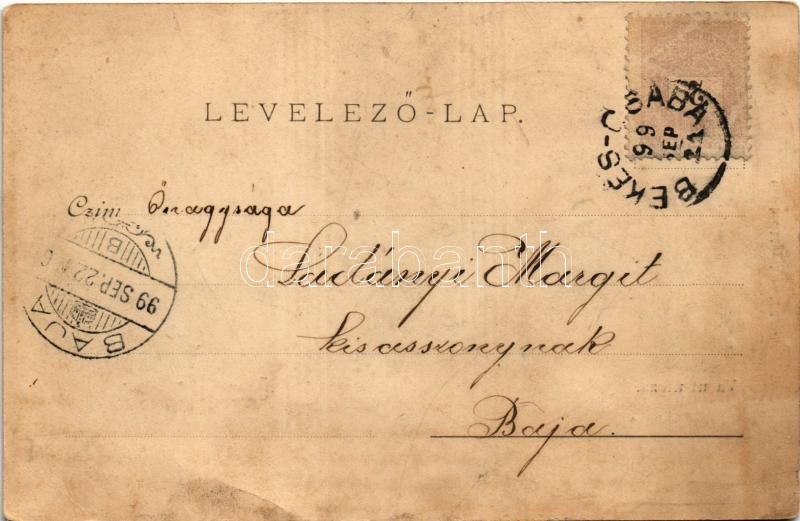 LEVELEZŐ-LAP.
BÉKÉS-CSABA
99 SEP 21
Czim Őnagysága
Ladányi Margit
kisasszonynak
Baja.
BAJA
99 SEP. 22
B
darabanth